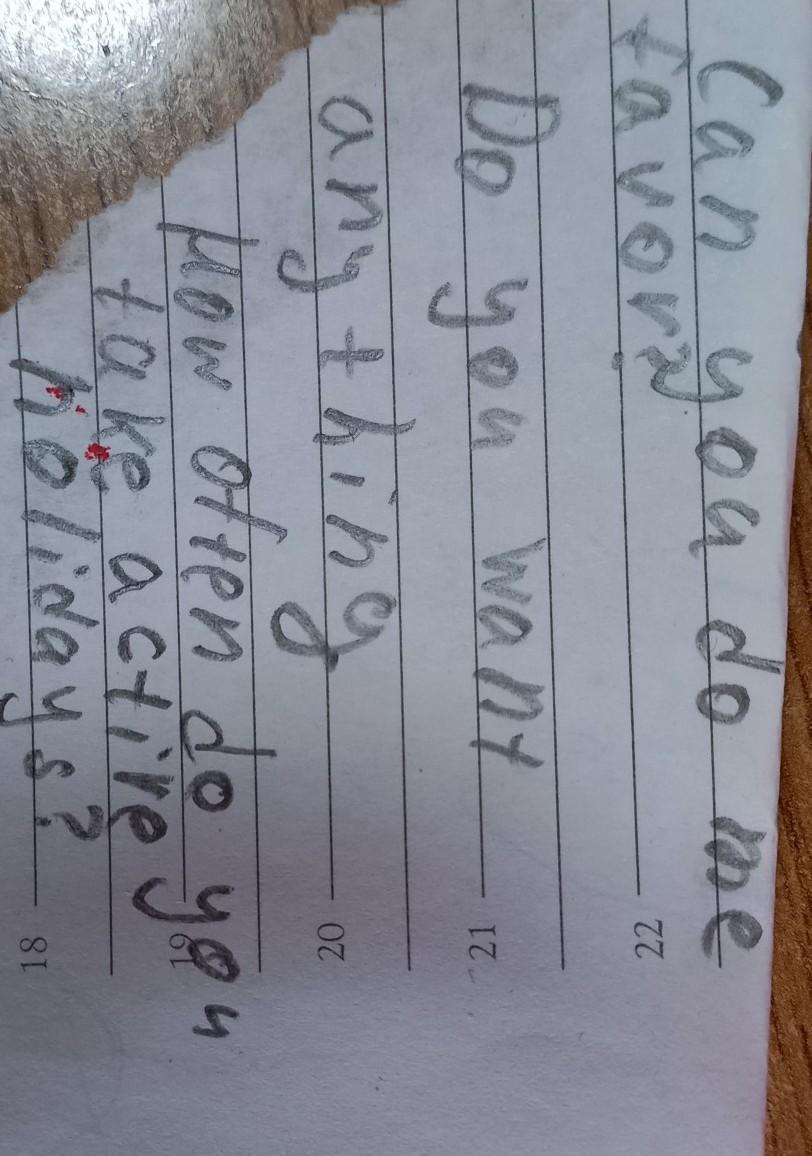 Can you do me
favor?
Do you want
anything
How often do you
take active
holidays?
18
19
20
21
22